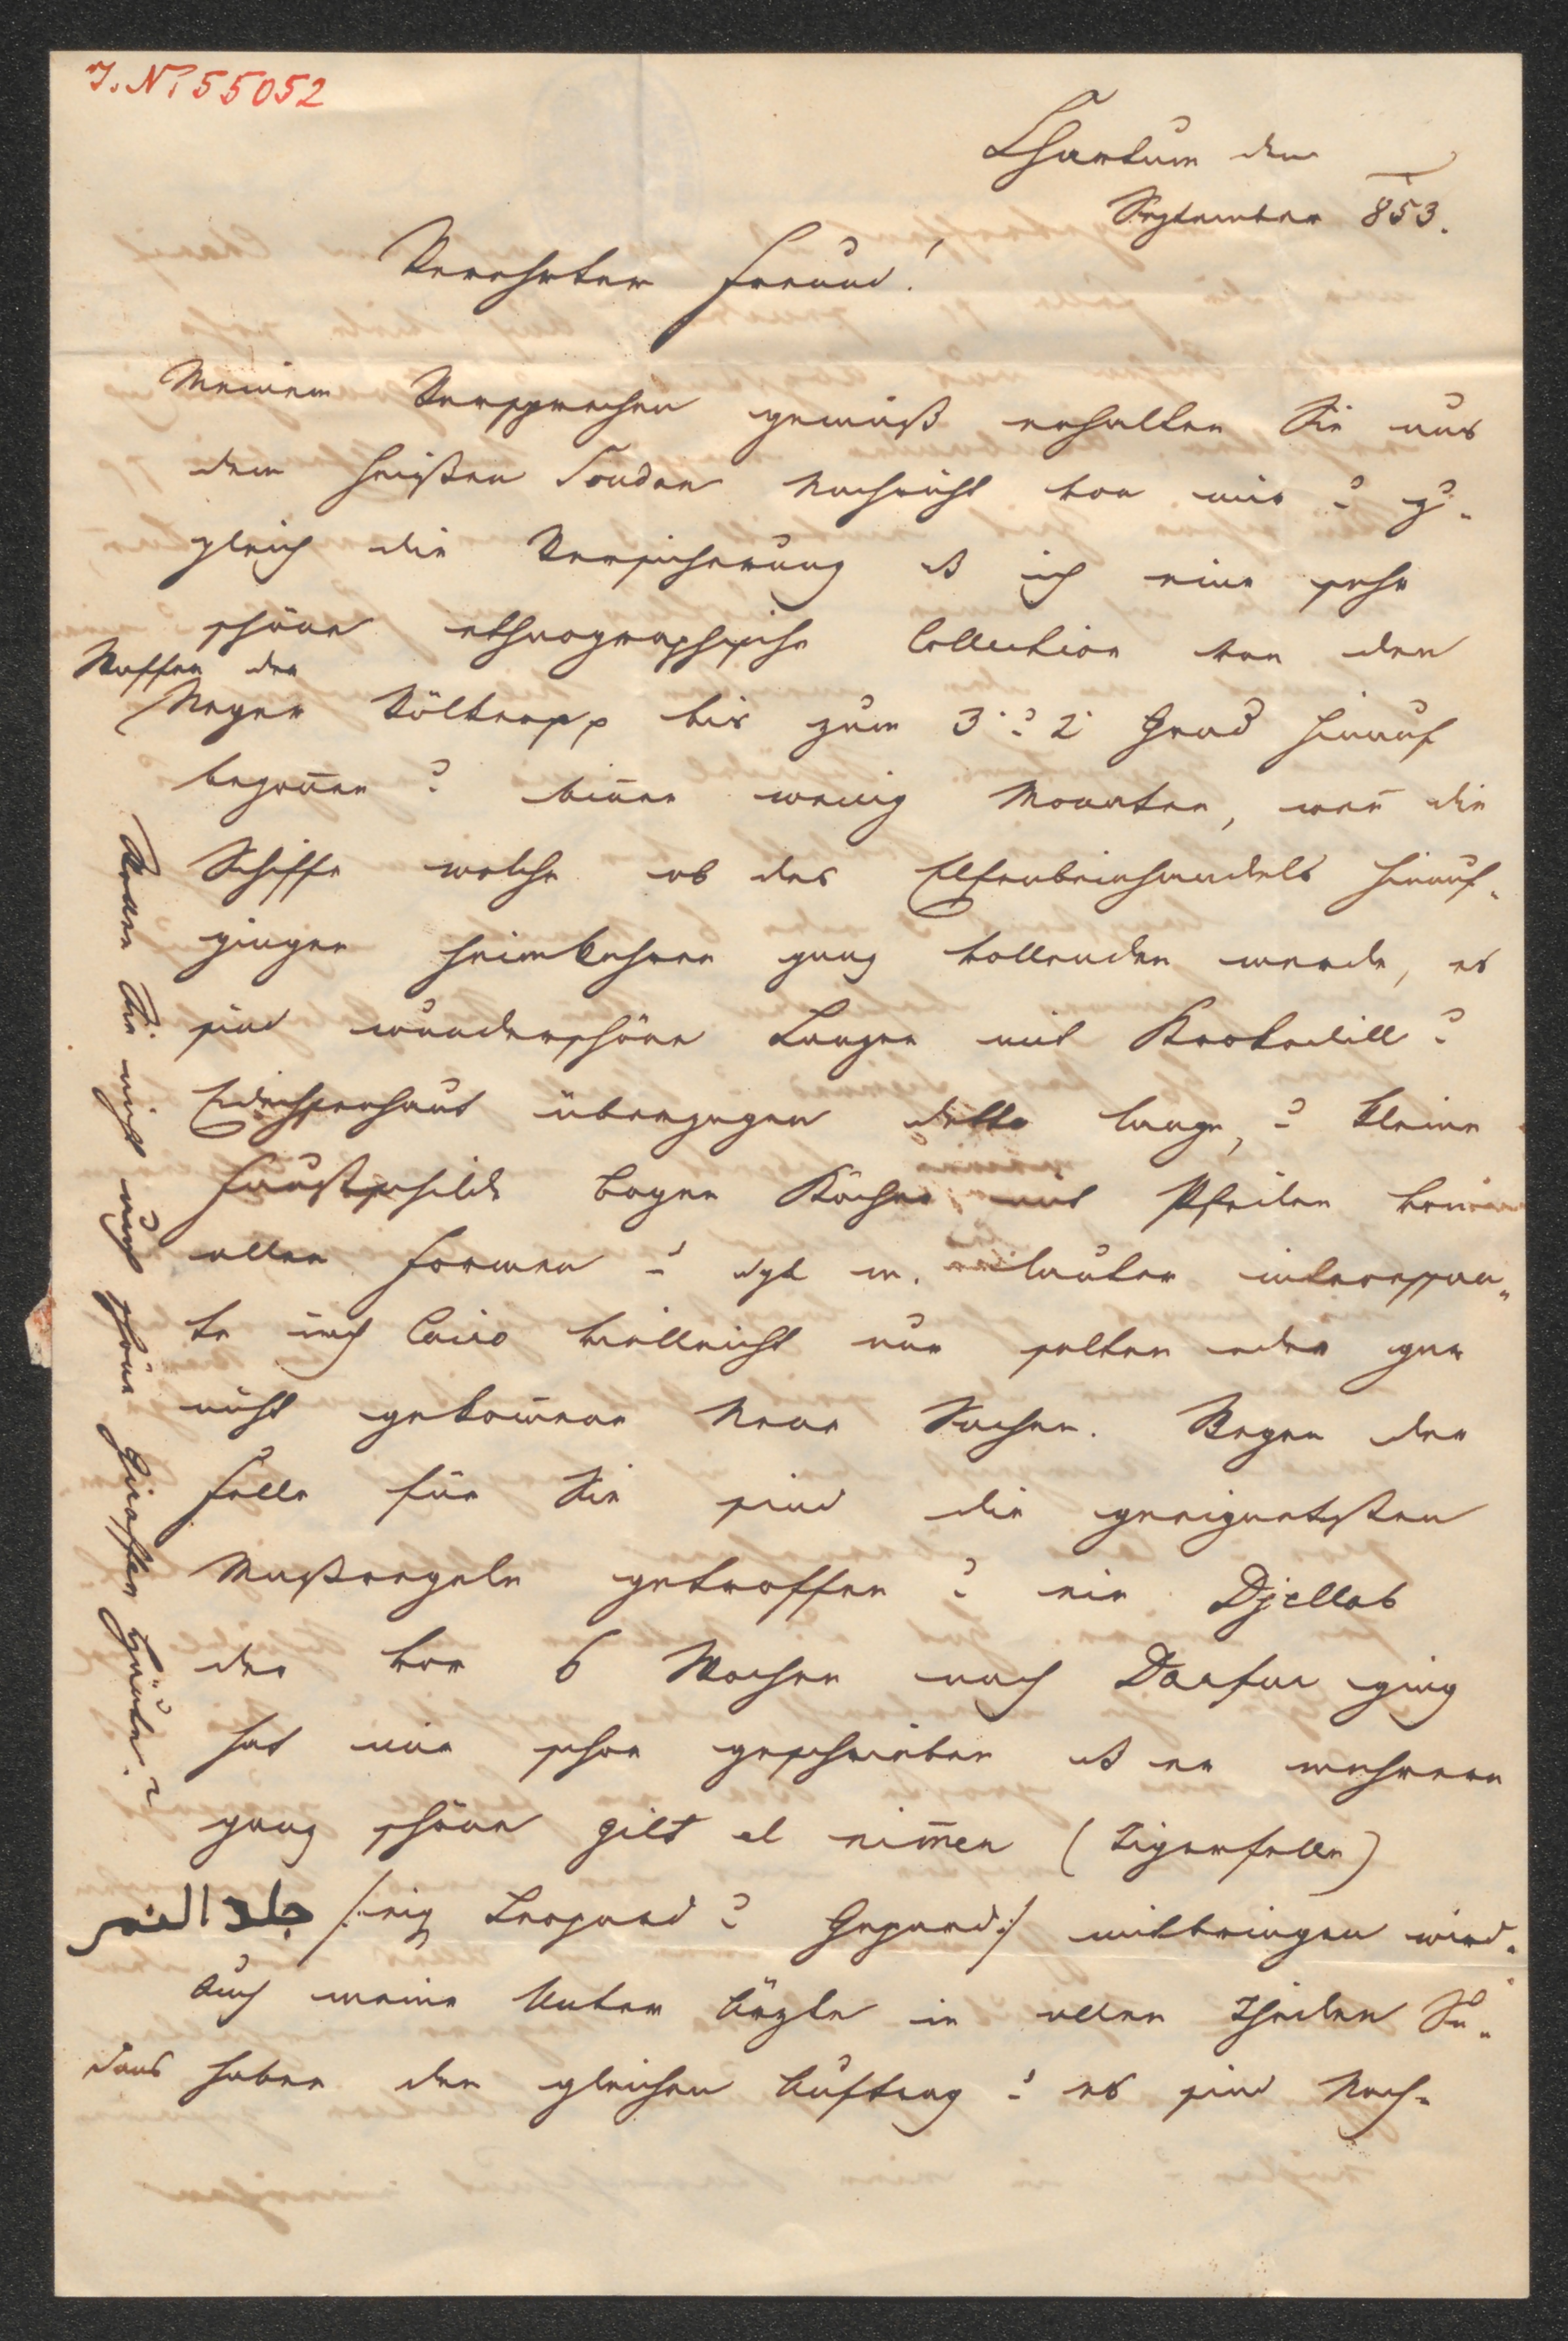 J. N: 55052
Chartum den
September 853.
Verehrter Freund!
Meinem Versprechen gemäß erhalten Sie aus
dem heißen Soudan Nachricht von mir u zu-
gleich die Versicherung dß ich eine sehr
schöne ethnographische Collection von den
Waffen der
Neger Völkern pp bis zum 3. u 2. Grad hinauf
begoñen u biñen wenig Monaten, weñ die
Schiffe welche ob des Elfenbeinhandels hinauf-
gingen heimkehren ganz vollenden werde, es
sind wunderschöne Lanzen mit Krokodill u
Eidechsenhaut überzogen detto lange, u kleine
Faustschilde Bogen Köcher mit Pfeilen von
allen Formen u dgl m. lauter interessan-
te nach Cairo vielleicht nur selten oder gar
nicht gekom̄ene Neue Sachen. Wegen der
Felle für Sie sind die geeignetsten
Maßregeln getroffen u ein Djellab
der vor 6 Wochen nach Darfur ging
hat mir schon geschrieben dß er mehrere
ganz schöne gilt el nim̄er (Tigerfelle)
جلد النمر /: eig Leopard u Gepard :/ mitbringen wird.
Auch meine Unter Ärzte in allen Theilen Su-
dans haben den gleichen Auftrag u es sind Nach-
Wollen Sie nicht auch schöne Giraffen Häute?